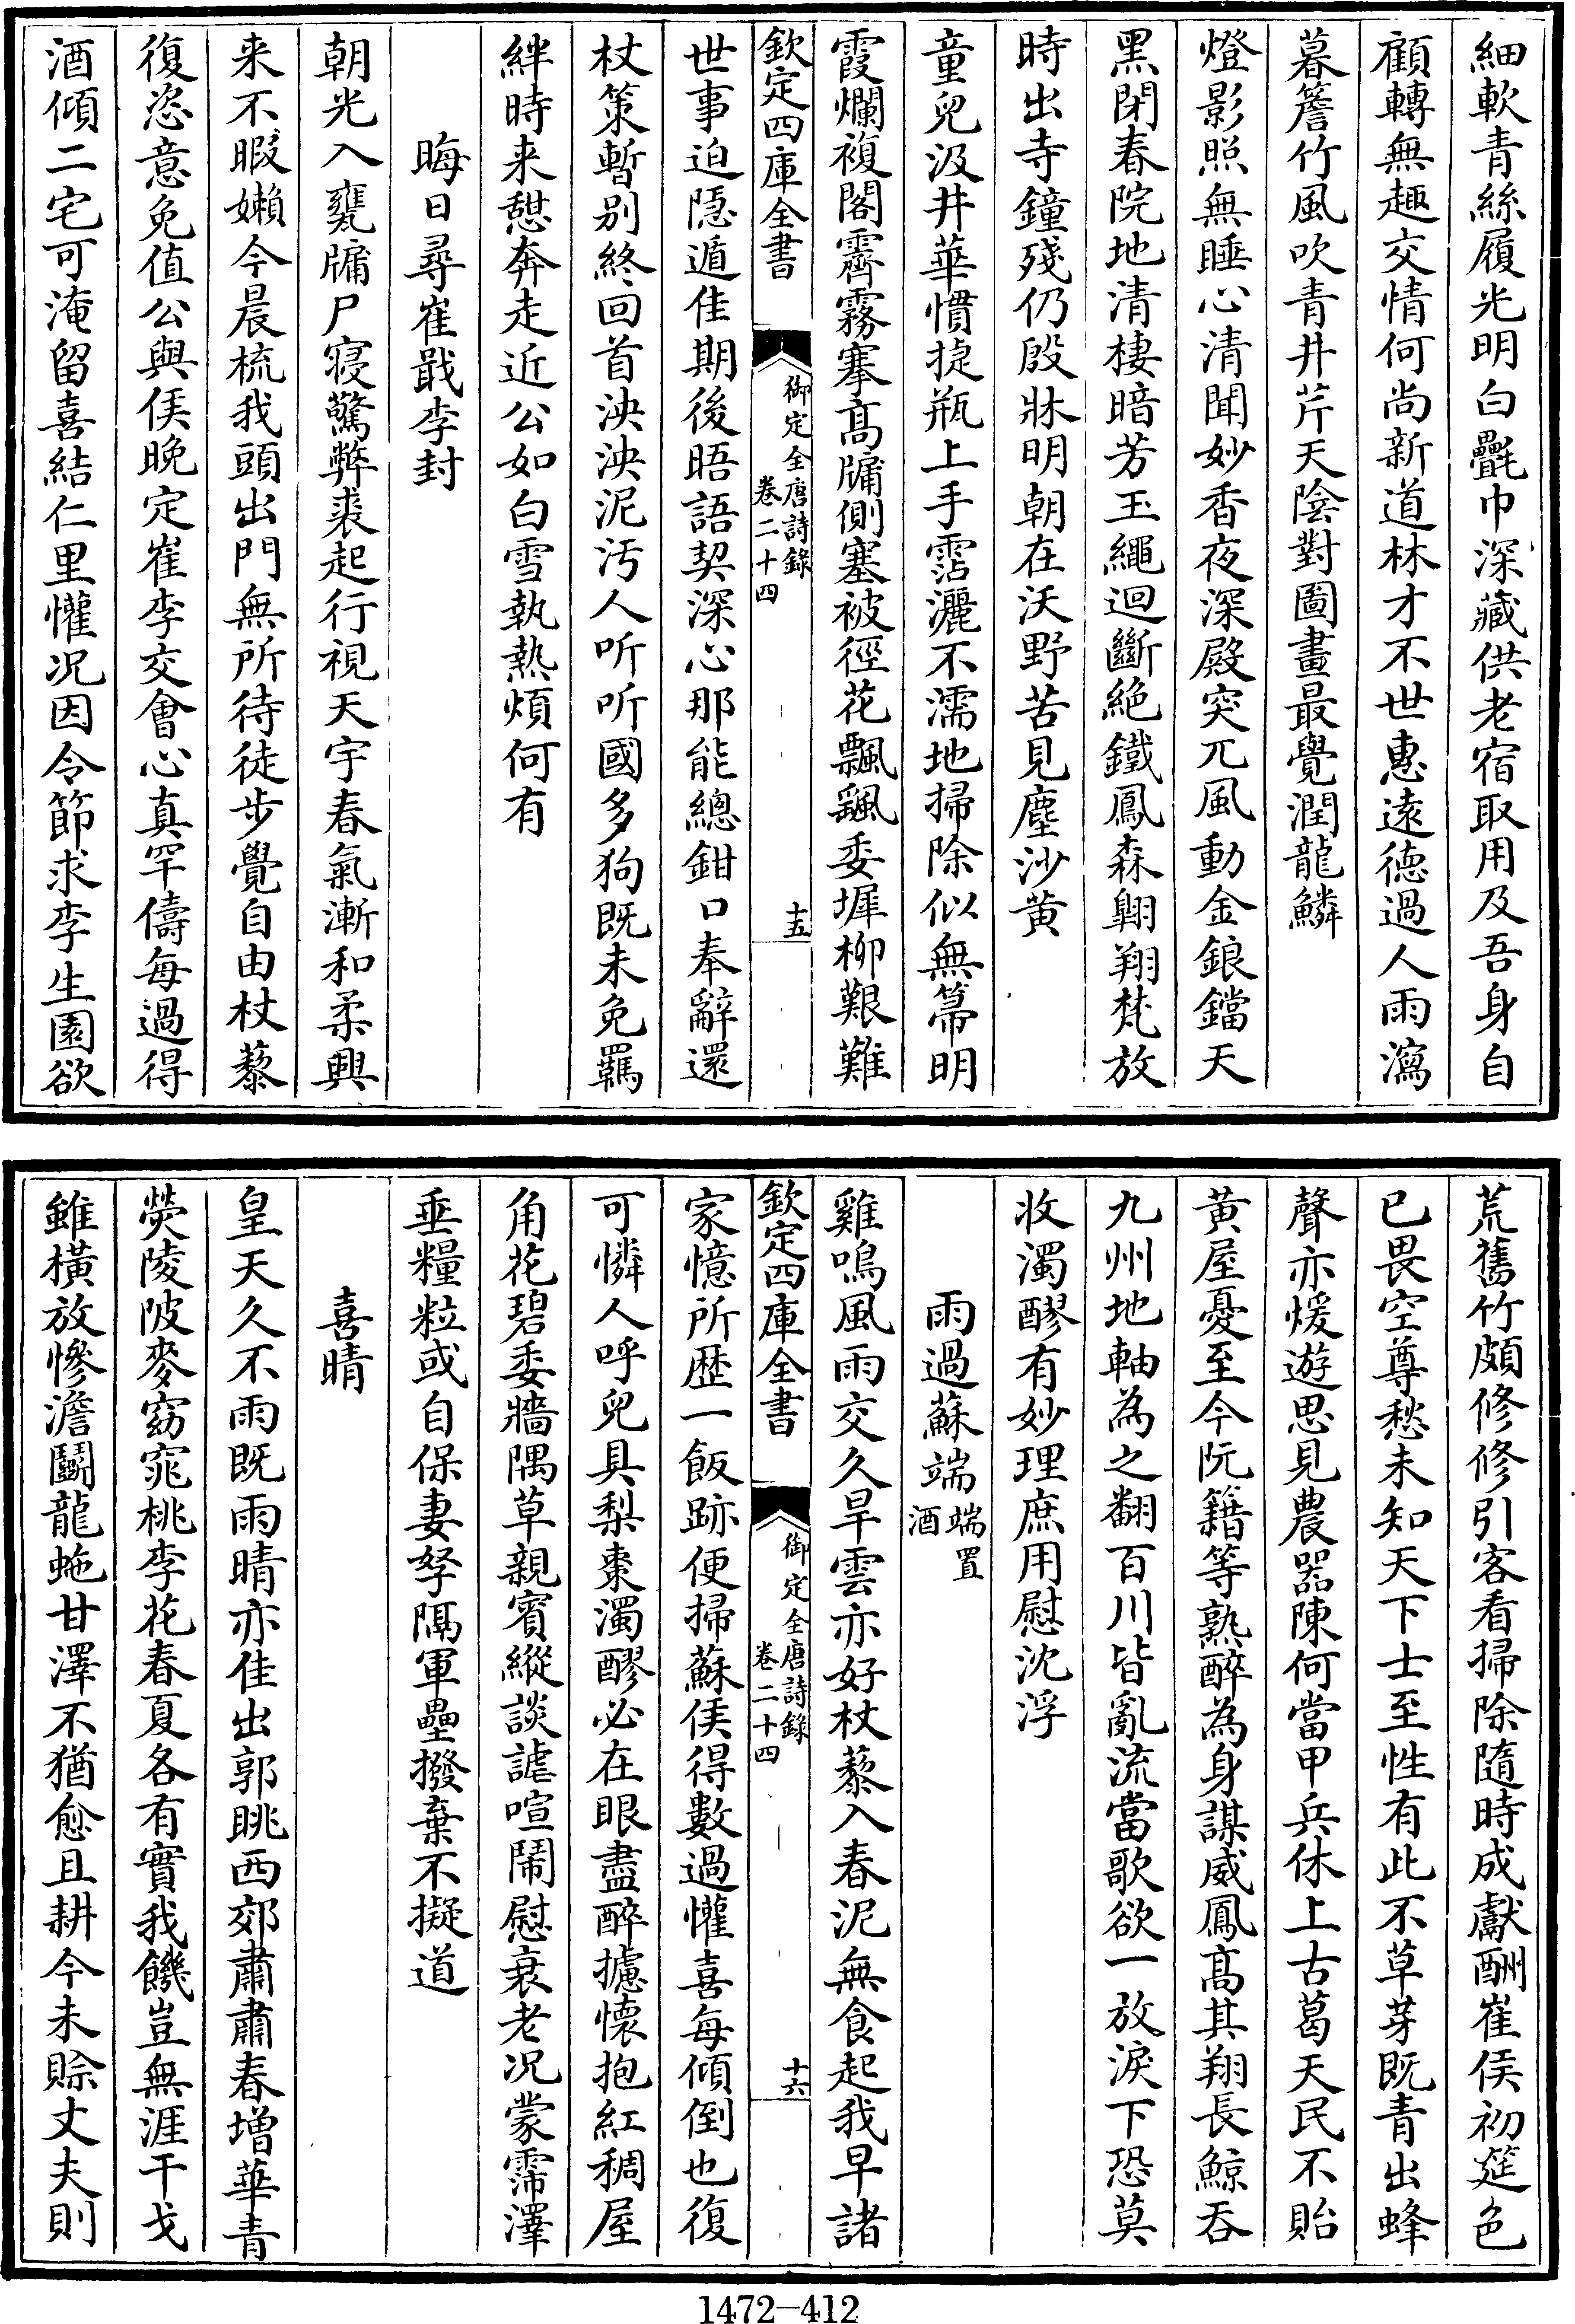 細軟青絲履光明白㲲巾深藏供老宿取用及吾身自
顧轉無趣交情何尚新道林才不世惠遠德過人雨瀉
暮簷竹風吹青井芹天陰對圖畫最覺潤龍鱗
燈影照無睡心清聞妙香夜深殿突兀風動金鋃鐺天
黑閉春院地清棲暗芳玉繩迴斷絶鐵鳳森翺翔梵放
時出寺鐘殘仍殷牀明朝在沃野苦見塵沙黄
童兒汲井華慣㨗瓶上手霑灑不濡地掃除似無箒明
霞爛複閣霽霧搴髙牖側塞被徑花飄颻委墀柳艱難
欽定四庫全書
御定全唐詩錄
卷二十四
十五
世事迫隠遁佳期後晤語契深心那能總鉗口奉辭還
杖策暫别終回首泱泱泥汚人听听國多狗既未免羈
絆時来憇奔走近公如白雪執熱煩何有
晦日尋崔戢李封
朝光入甕牖尸寢驚弊裘起行視天宇春氣漸和柔興
来不暇嬾今晨梳我頭出門無所待徒步覺自由杖藜
復恣意免值公與侯晚定崔李交會心真罕儔每過得
酒傾二宅可淹留喜結仁里懽況因令節求李生園欲
荒舊竹頗修修引客看掃除隨時成獻酬崔侯初筵色
已畏空尊愁未知天下士至性有此不草芽既青出蜂
聲亦煖遊思見農器陳何當甲兵休上古葛天民不貽
黄屋憂至今阮籍等熟醉為身謀威鳳髙其翔長鯨吞
九州地軸為之翻百川皆亂流當歌欲一放淚下恐莫
收濁醪有妙理庶用慰沈浮
雨過蘇端端置酒
雞鳴風雨交久旱雲亦好杖藜入春泥無食起我早諸
欽定四庫全書
御定全唐詩錄
卷二十四
十六
家憶所歴一飯跡便掃蘇侯得數過懽喜每傾倒也復
可憐人呼兒具梨棗濁醪必在眼盡醉攄懐抱紅稠屋
角花碧委牆隅草親賓縱談謔喧鬧慰衰老況蒙霈澤
垂糧粒或自保妻孥隔軍壘撥棄不擬道
喜晴
皇天久不雨既雨晴亦佳出郭眺西郊肅肅春増華青
熒陵陂麥窈窕桃李花春夏各有實我饑豈無涯干戈
雖橫放慘澹鬭龍虵甘澤不猶愈且耕今未賒丈夫則
1472-412